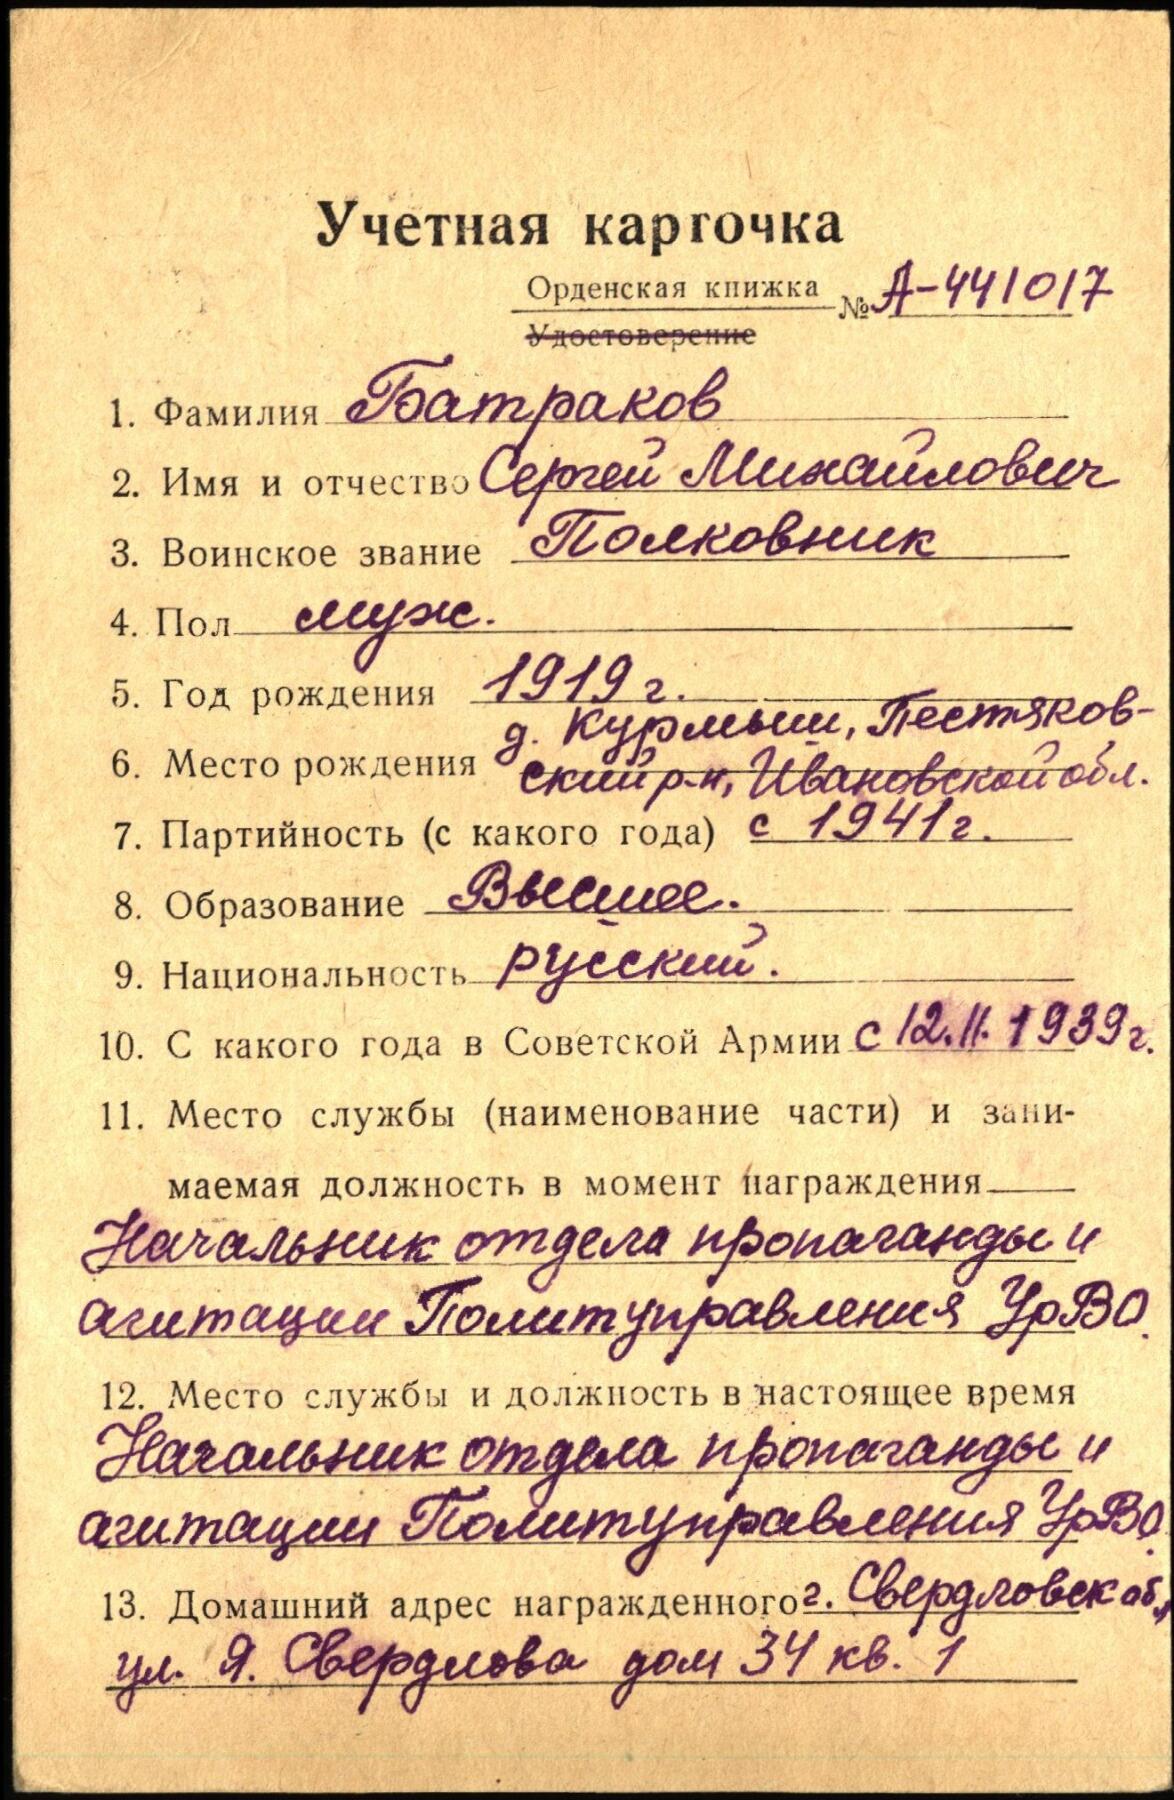 Учетная карточка
Орденская книжка № А-441017
Удостоверение
1. Фамилия Батраков
2. Имя и отчество Сергей Михайлович
3. Воинское звание Полковник
4. Пол муж.
5. Год рождения 1919 г.
д. Курмыш, Пестяков-
6. Место рождения ский р-н, Ивановской обл.
7. Партийность (с какого года) с 1941 г.
8. Образование Высшее.
9. Национальность русский.
10. С какого года в Советской Армии с 12.11.1939 г.
11. Место службы (наименование части) и зани-
маемая должность в момент награждения
Начальник отдела пропаганды и
агитации Политуправления УрВО.
12. Место службы и должность в настоящее время
Начальник отдела пропаганды и
агитации Политуправления УрВО.
13. Домашний адрес награжденного г. Свердловск об.,
ул. Я. Свердлова дом 34 кв. 1